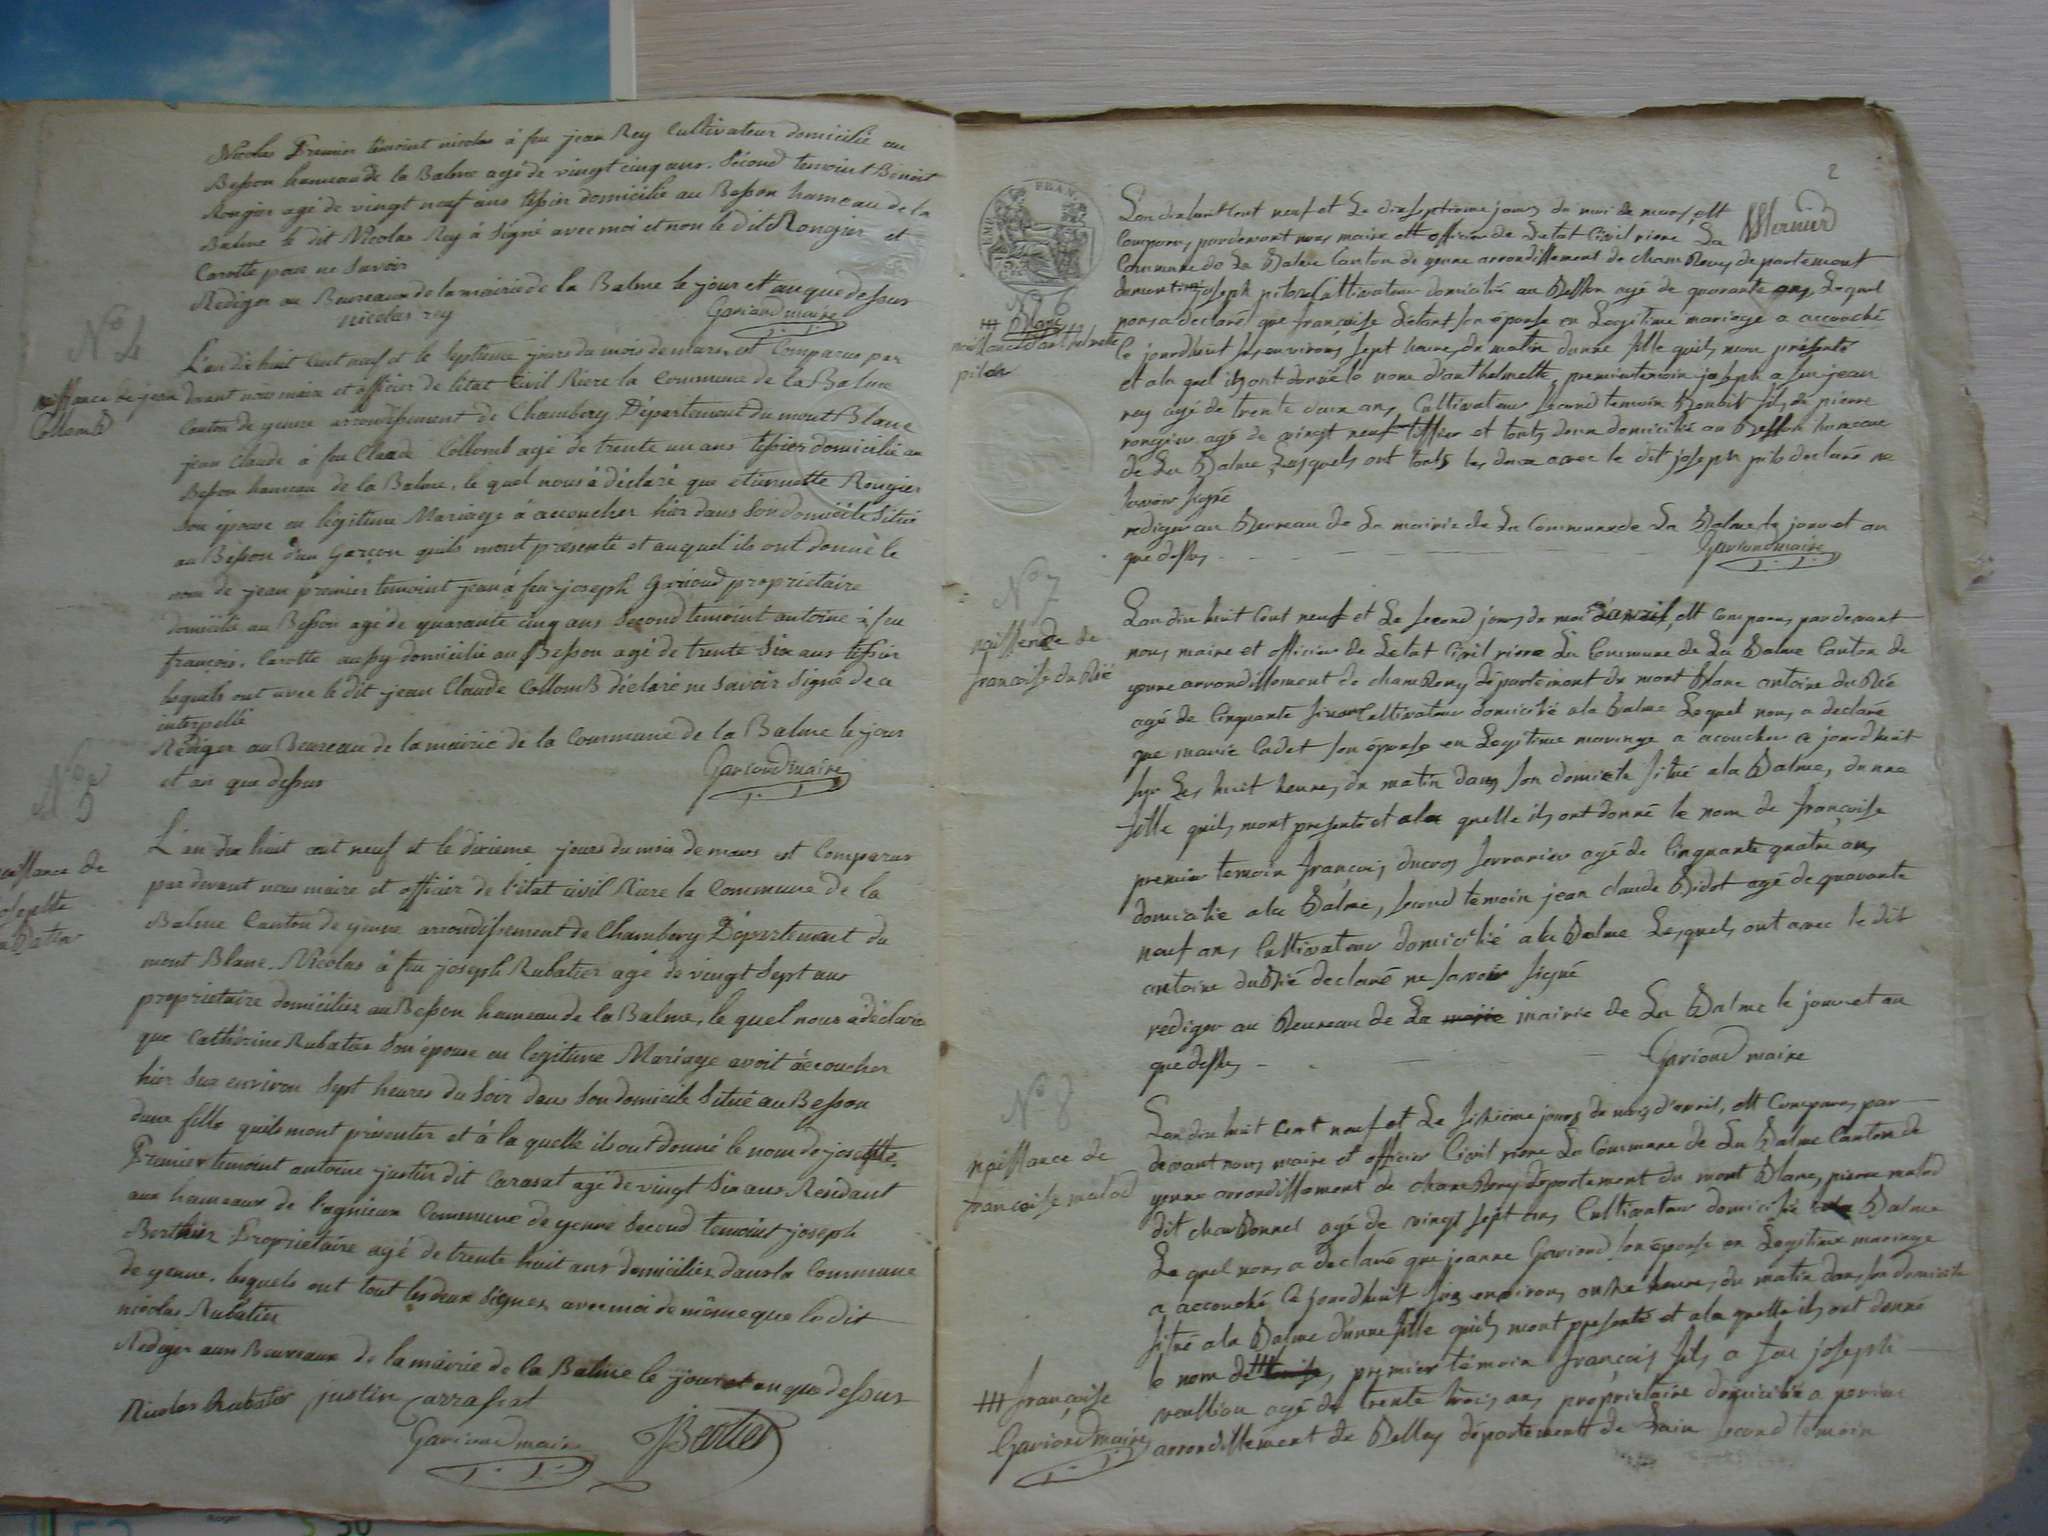 Nicolas Premier temoint nicolas à feu jean Rey Cultivateur domicilié au
Besson hameau de la Balme agé de vingt cinq ans. Second temoint Benoit
Rougier agé de vingt neuf ans tissier domicilié au Besson hameau de la
Balme le dit Nicolas Rey à Signé avec moi et non le dit Rougier et
Carotte pour ne Savoir
Rediger au Beureaux de la mairie de la Balme le jour et an que dessus
nicolas rey Gariond maire
N° 4
naissance de jean
Collomb
L'an dix huit Cent neuf et le Septieme jours du mois de mars, est Comparus par
devant nous maire et officier de l'état Civil Riere la Commune de la Balme
Canton de yenne arrondissement de Chambery Département du mont Blanc
jean Claude à feu Claude Collomb agé de trente un ans tissier domicilié au
Besson hameau de la Balme, le quel nous à déclaré que etiennette Rougier
Son épouse en légitime Mariage à accoucher hier dans Son domicile Situé
au Besson d'un garçon quils mont presenté et auquel ils ont donné le
nom de jean premier temoint jean à feu joseph Gariod proprietaire
domicilié au Besson agé de quarante cinq ans Second temoint antoine à feu
françois Carotte aussy domicilié au Besson agé de trente Six ans tissier
lesquels ont avec le dit jean Claude Collomb déclaré ne Savoir Signé de ce
interpellé
Rédiger au Beureau de la mairie de la Commune de la Balme le jour
et an que dessus Gariond maire
N° 5
naissance de
josephte
Rubatier
L'an dix huit cent neuf et le dixieme jours du mois de mars est Comparus
par devant nous maire et officier de l'état civil Riere la Commune de la
Balme Canton de yenne arrondissement de Chambery Département du
mont Blanc. Nicolas à feu joseph Rubatier agé de vingt Sept ans
proprietaire domicilier au Besson hameau de la Balme, le quel nous à déclaré
que Cathérine Rubatier Son épouse en legitime Mariage avoit accoucher
hier Sur environ Sept heures du Soir dans Son domicile Situé au Besson
dune fille quils mont présenter et à la quelle ils ont donné le nom de josephte
Premier temoint antoine justin dit Carasat agé de vingt Six ans Residant
aux hameaux de lagnieux Commune de yenne Second temoint joseph
Berthier Proprietaire agé de trente huit ans domicilier dans la Commune
de yenne. lesquels ont tout les deux Signer avec moi de même que le dit
nicolas Rubatier
Rediger aux Beureaux de la mairie de la Balme le jour et an que dessus
Nicolas Rubatier justin carrasat
Gariond maire JBertier
2
Lan dix huit Cent neuf et Le dix septieme jours du moi de mars, est
Comparus pardevant nous maire et officier de Letat Civil riere La
Commune de La Balme Canton de yenne arrondissement de chamBery departement
N° 6
pilon
joseph pilon Cultivateur domicilié au Besson agé de quarante ans, Le quel
nous a déclaré que françoise Letant son épouse en Legitime mariage a accouché
Ce jourdhuit sus environs sept heures du matin dunne fille quils mon présenté
et ala quel ils ont donné le nom d'anthelmette, premier temoin joseph a feu jean
rey agé de trente deux ans, Cultivateur second temoin Benoit fils de pierre
rougier agé de vingt neuf tissier et touts deux domicilié au Besson hameau
de La Balme, Lesquels ont touts les deux avec le dit joseph pilon declaré ne
savoir signé
rediger au Bureau de La mairie de La Commune de La Balme le jour et an
que dessus Gariond maire
N° 7
naissence de
françoise duBié
Lan dix huit Cent neuf et Le second jours du moi d'avril, est Comparus pardevant
nous maire et officier de Letat Civil riere La Commune de La Balme Canton de
yenne arrondissement de chamBery département du mont Blanc antoine duBié
agé de Cinquante six ans Cultivateur domicilié ala Balme Le quel nous a declaré
que marie Cadet son épouse en Legitime mariage a acoucher ce jourdhuit
sur Les huit heures du matin dans son domicile situé ala Balme, dunne
fille quils mont presenté et ala quelle ils ont donné le nom de françoise
premier temoin françois ducros serrurier agé de Cinquante quatre ans,
domicilié ala Balme, second témoin jean claude Bidot agé de quarante
neuf ans, Cultivateur domicilié ala Balme Lesquels ont avec le dit
antoine duBié declaré ne savoir signé
rediger au Beureau de La mairie mairie de La Balme le jour et an
que dessus Gariond maire
N° 8
naissance de
françoise malod
Lan dix huit Cent neuf et Le sixième jours du mois d'avril, est Comparus par
devant nous maire et officier Civil riere La Commune de La Balme Canton de
yenne arrondissement de chamBery département du mont Blanc, pierre malod
dit charBonnel agé de vingt sept ans Cultivateur domicilié ala Balme
Le quel nous a declaré que jeanne Gariond son épouse en Legitime mariage
a accouché Ce jourdhuit sus environs onze heures du matin dans son domicile
situé ala Balme d'unne fille quils mont presenté et ala quelle ils ont donné
le nom de premier témoin françois fils a feu joseph
veuillou agé de trente trois ans, proprietaire domicilié a
arrondissement de Belley département de Lain second temoin
françoise
Gariond maire